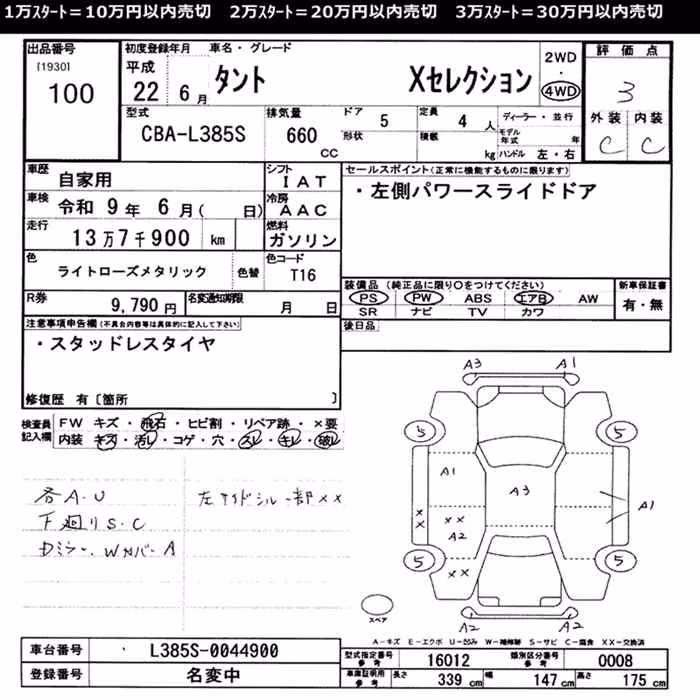 1万スタート＝10万円以内売切　2万スタート＝20万円以内売切　3万スタート＝30万円以内売切
出品番号
[1930]
100
初度登録年月
平成
22 6 月
車名・グレード
タント Xセレクション
2WD
・
4WD
評価点
3
外装 内装
C C
型式
CBA-L385S
排気量
660
CC
ドア 5
形状
定員 4 人
積載 kg
ディーラー・並行
モデル年式 年
ハンドル 左・右
車歴 自家用
車検 令和 9年 6月( 日)
走行 13万7千900 km
色 ライトローズメタリック 色替
シフト IAT
冷房 AAC
燃料 ガソリン
色コード T16
R券 9,790 円
名変通知期限 月 日
セールスポイント(正常に機能するものに限ります)
・左側パワースライドドア
装備品 (純正品に限り○をつけてください)
PS PW ABS エアB AW
SR ナビ TV カワ
新車保証書
有・無
後日品
注意事項申告欄(不具合内容等は具体的に記入して下さい)
・スタッドレスタイヤ
修復歴 有〔箇所 〕
検査員記入欄
FW キズ・飛石・ヒビ割・リペア跡・×要
内装・キズ・汚レ・コゲ・穴・スレ・キレ・破レ
各A.U
下廻りS.C
Dミラー、Wカバー A
左サイドシル一部××
A3 A1
5 5
A1
A3
A1
××
××
A2
5 5
××
スペア
A2 A2
A－キズ E－エクボ U－凹み W－補修跡 S－サビ C－腐食 XX－交換済
車台番号 ・ L385S-0044900
登録番号 名変中
型式指定番号 参考 16012
類別区分番号 参考 0008
車庫証明用 参考
長さ 339 cm
幅 147 cm
高さ 175 cm